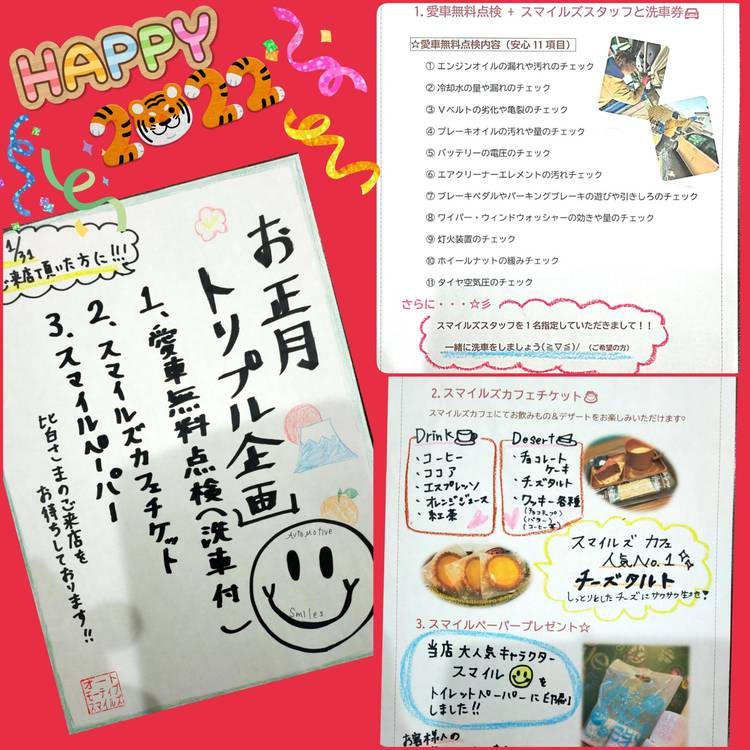 HAPPY
2022
1/31
ご来店頂いた方に!!!
お正月
トリプル企画
1、愛車無料点検(洗車付)
2、スマイルズカフェチケット
3、スマイルペーパー
皆さまのご来店を
お待ちしております!!
Automotive
Smiles
オート
モーティブ
スマイルズ
1. 愛車無料点検 + スマイルズスタッフと洗車券
☆愛車無料点検内容(安心11項目)
① エンジンオイルの漏れや汚れのチェック
② 冷却水の量や漏れのチェック
③ Vベルトの劣化や亀裂のチェック
④ ブレーキオイルの汚れや量のチェック
⑤ バッテリーの電圧のチェック
⑥ エアクリーナーエレメントの汚れチェック
⑦ ブレーキペダルやパーキングブレーキの遊びや引きしろのチェック
⑧ ワイパー・ウィンドウォッシャーの効きや量のチェック
⑨ 灯火装置のチェック
⑩ ホイールナットの緩みチェック
⑪ タイヤ空気圧のチェック
さらに・・・☆彡
スマイルズスタッフを1名指定していただきまして!!
一緒に洗車をしましょう(≧∇≦)/ (ご希望の方)
2. スマイルズカフェチケット
スマイルズカフェにてお飲みもの&デザートをお楽しみいただけます♡
Drink
・コーヒー
・ココア
・エスプレッソ
・オレンジジュース
・紅茶
Desert
・チョコレート
ケーキ
・チーズタルト
・クッキー各種
(チョコチップ)
(バター)
(コーヒー等)
スマイルズ カフェ
人気No.1
チーズタルト
しっとりとしたチーズにサクサク生地!
3. スマイルペーパープレゼント☆
当店大人気キャラクター
スマイル を
トイレットペーパーに印刷
しました!!
お客様への